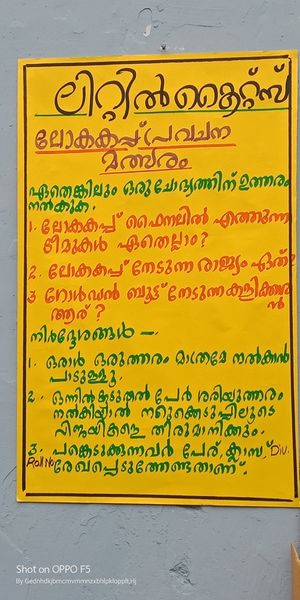 ലിറ്റിൽ കൈറ്റ്സ്
ലോകകപ്പ് പ്രവചന
മത്സരം
ഏതെങ്കിലും ഒരു ചോദ്യത്തിന് ഉത്തരം
നൽകുക.
1. ലോകകപ്പ് ഫൈനലിൽ എത്തുന്ന
ടീമുകൾ ഏതെല്ലാം?
2. ലോകകപ്പ് നേടുന്ന രാജ്യം ഏത്?
3 ഗോൾഡൻ ബൂട്ട് നേടുന്ന കളിക്കാരൻ
ആര് ?
നിർദ്ദേശങ്ങൾ —.
1. ഒരാൾ ഒരുത്തരം മാത്രമേ നൽകാൻ
പാടുള്ളൂ.
2. ഒന്നിൽ കൂടുതൽ പേർ ശരിയുത്തരം
നൽകിയാൽ നറുക്കെടുപ്പിലൂടെ
വിജയികളെ തീരുമാനിക്കും.
3. പങ്കെടുക്കുന്നവർ പേര്, ക്ലാസ്, Div.
Roll no രേഖപ്പെടുത്തേണ്ടതാണ്.
Shot on OPPO F5